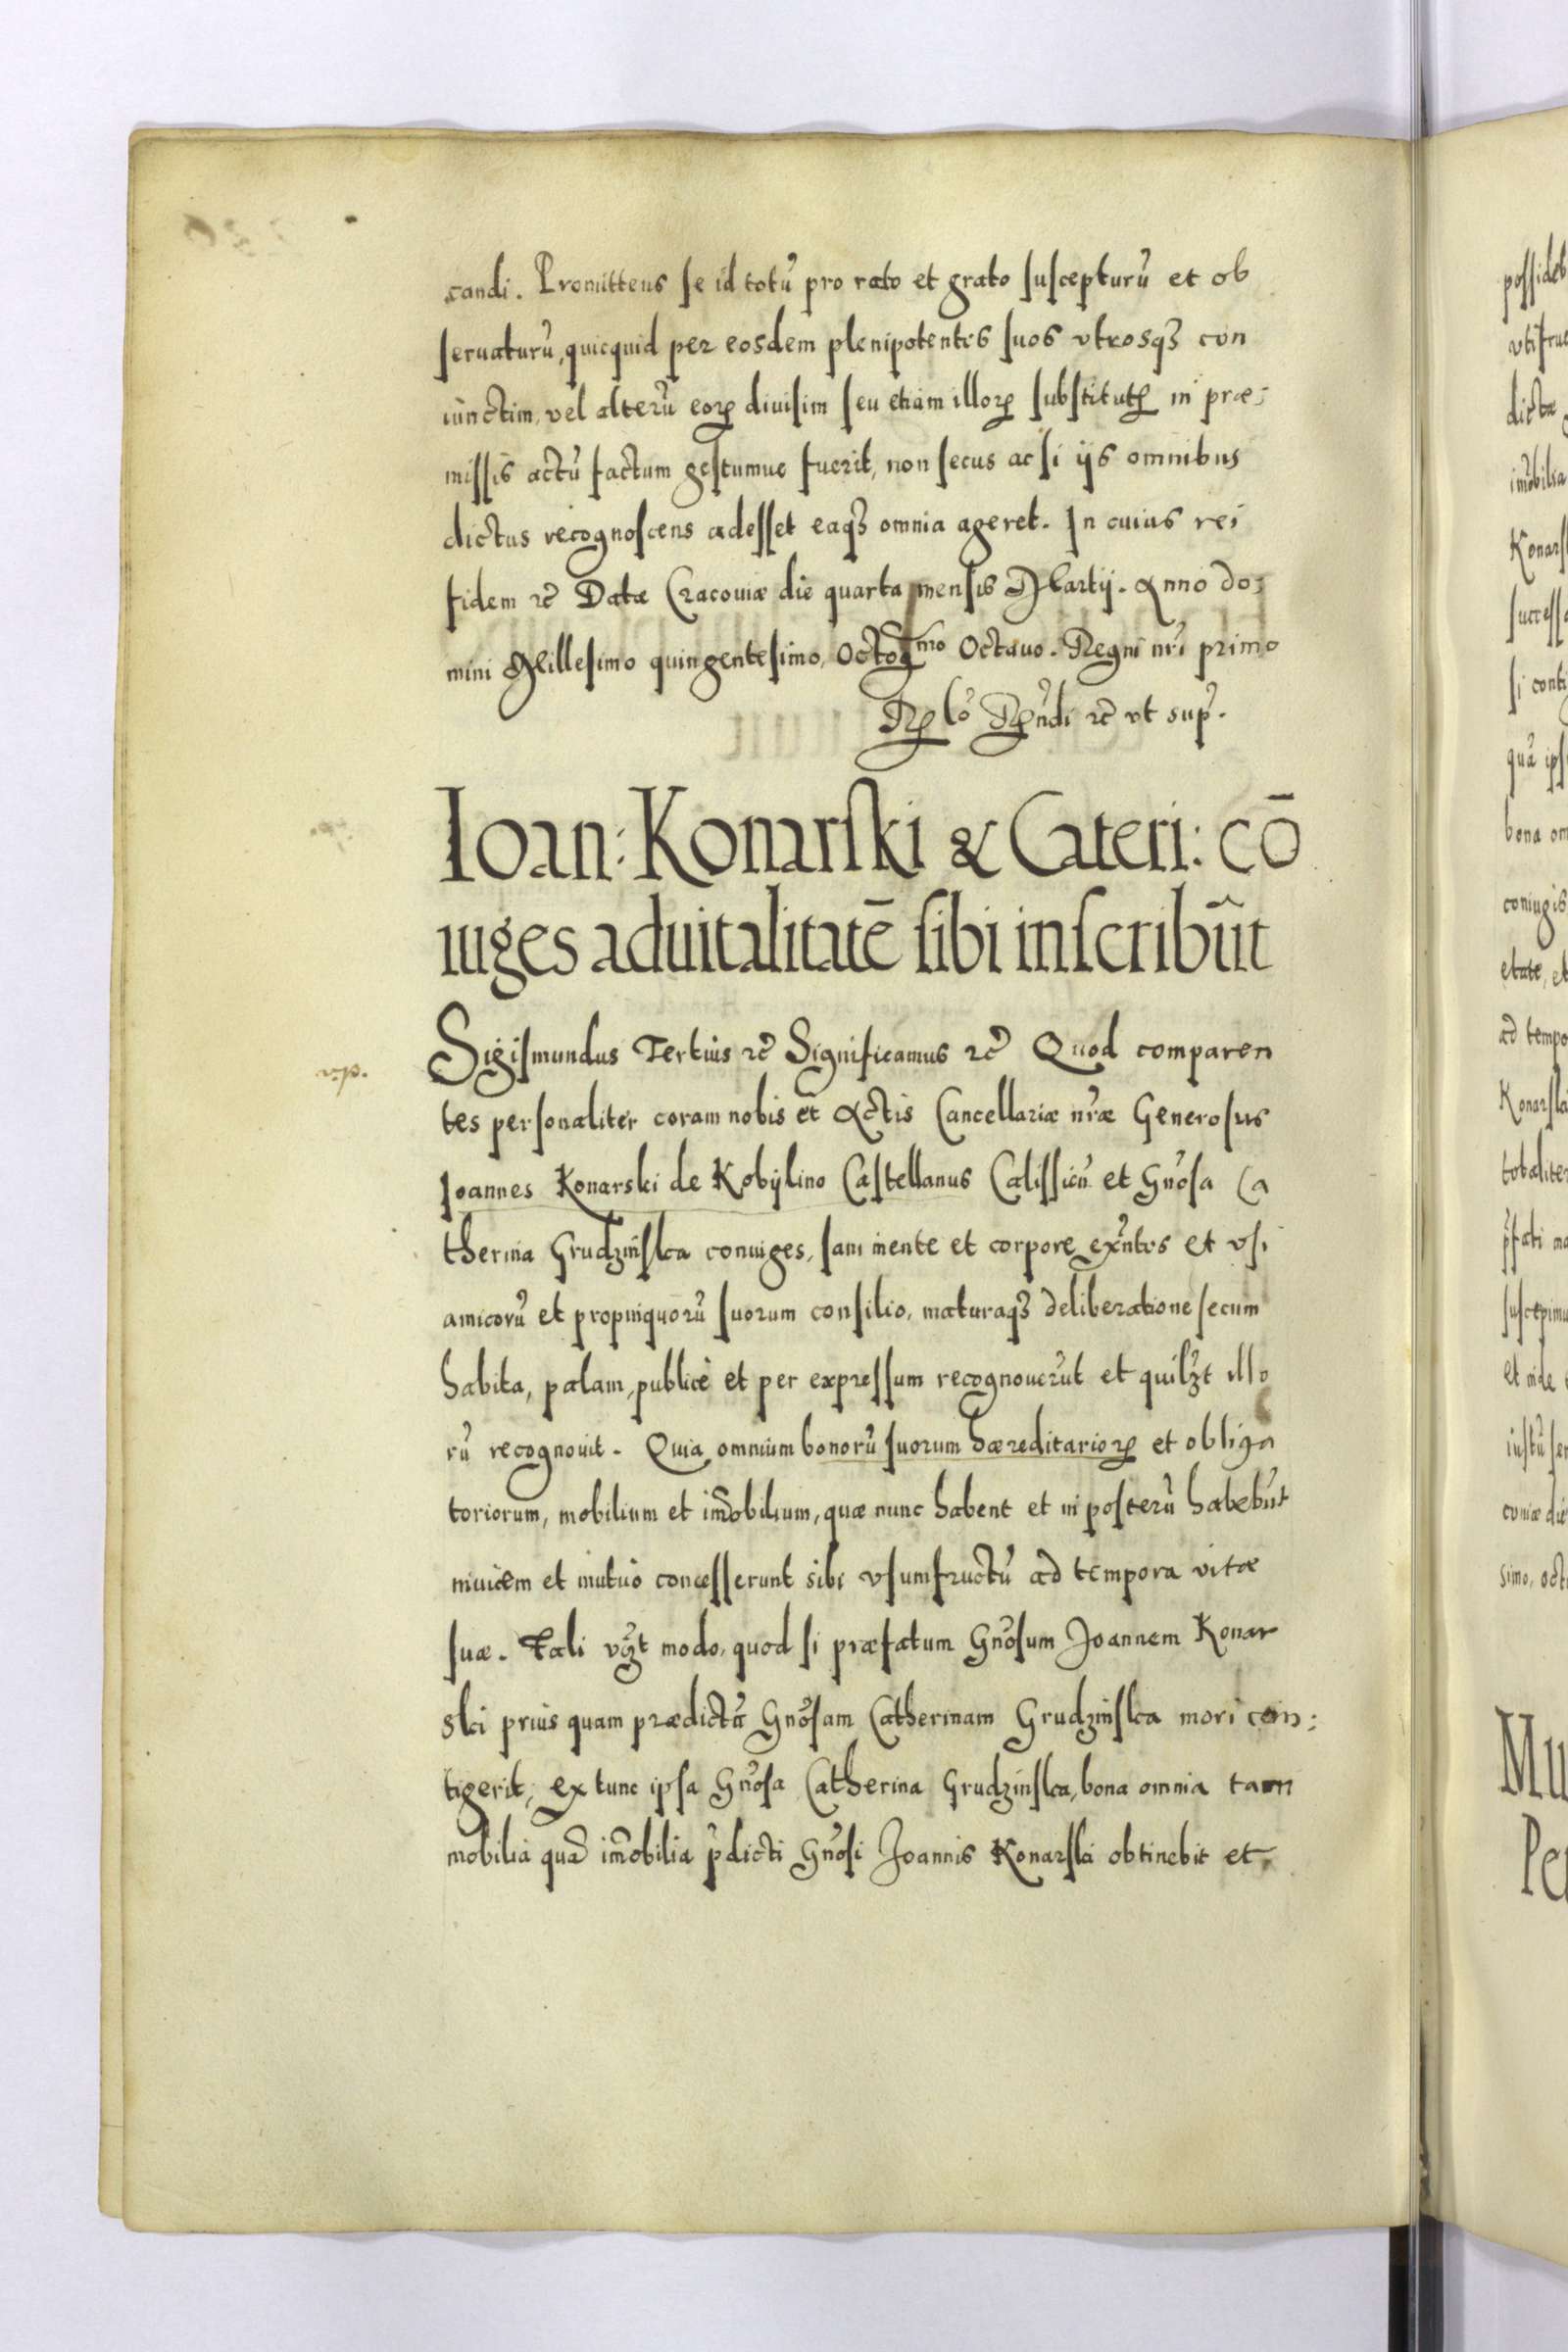 candi. Promittens se id totū pro rato et grato suscepturū et ob
seruaturū, quicquid per eosdem plenipotentes suos vtrosqꝫ con
iunctim, vel alterū eorꝝ diuisim seu etiam illorꝝ substitutꝝ in præ:
missis actū factum gestumue fuerit, non secus ac si ijs omnibus
dictus recognoscens adesset eaqꝫ omnia ageret. In cuius rei
fidem ꝛc̄ Datæ Cracouiæ die quarta mensis Martij. Anno do:
mini Millesimo quingentesimo, Octogmo Octauo. Regni nr̄i primo
Rꝑ ꝛc̄ vt sup̄.
Ioan: Konarski & Cateri: cō
iuges aduitalitatē sibi inscribūt
Sigismundus Tertius ꝛc̄ Significamus ꝛc̄ Quod comparen
tes personaliter coram nobis et Actis Cancellariæ nr̄æ Generosus
Joannes Konarski de Kobÿlino Castellanus Calissień et Gnōsa Ca
therina Grudzinska coniuges, sani mente et corpore exn̄tes et vsi
amicorū et propinquorū suorum consilio, maturaqꝫ deliberatione secum
habita, palam, publicè et per expressum recognouerūt et quilꝫt illo
rū recognouit. Quia omnium bonorū suorum hæreditariorꝝ et obliga
toriorum, mobilium et im̄obilium, quæ nunc habent et in posterū habebūt
inuicem et mutuò concesserunt sibi vsumfructū ad tempora vitæ
suæ. Tali vꝫt modo, quod si præfatum Gnōsum Joannem Konar
ski prius quam prædictā Gnōsam Catherinam Grudzinska mori con:
tigerit, ex tunc ipsa Gnōsa Catherina Grudzinska, bona omnia tam
mobilia quā im̄obilia p̄dicti Gnōsi Joannis Konarski obtinebit et